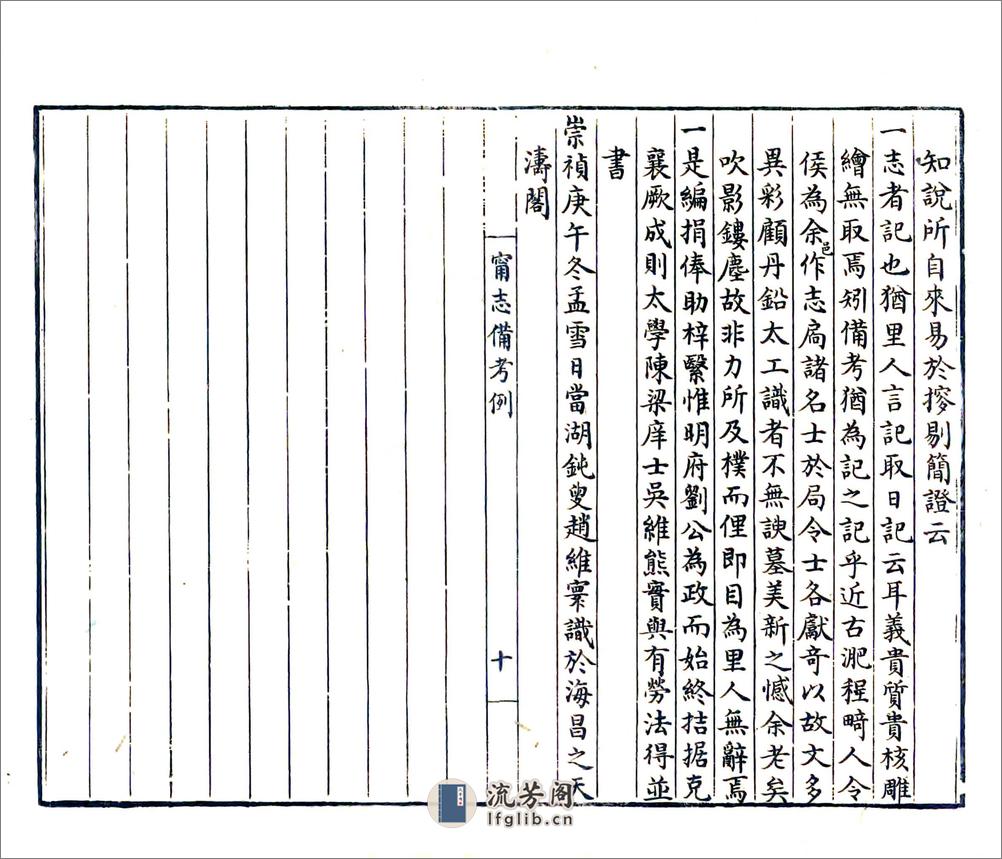 知說所自來易於摎剔簡證云
一志者記也猶里人言記取日記云耳義貴質貴核雕
繪無取焉矧備考猶為記之記乎近古淝程畸人令
侯為余邑作志扃諸名士於局令士各獻奇以故文多
異彩顧丹鉛太工識者不無諛墓美新之憾余老矣
吹影鏤塵故非力所及樸而俚即目為里人無辭焉
一是編捐俸助梓繄惟明府劉公為政而始終拮据克
襄厥成則太學陳梁庠士吳維熊實與有勞法得並
書
崇禎庚午冬孟雪日當湖鈍叟趙維寰識於海昌之天
濤閣
甯志備考例
十
流芳阁
lfglib.cn